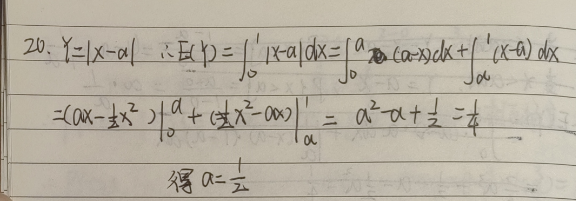 20. Y=|x-a| ∴E(Y)=∫₀¹|x-a|dx=∫₀ᵃ(a-x)dx+∫ₐ¹(x-a)dx
=(ax-½x²)|₀ᵃ+(½x²-ax)|ₐ¹=a²-a+½=¼
得 a=½